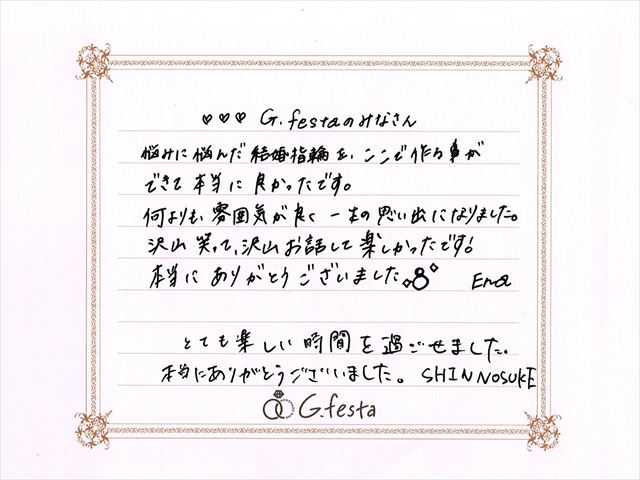 ♡♡♡ G.festaのみなさん
悩みに悩んだ結婚指輪を、ここで作る事が
できて本当に良かったです。
何よりも、雰囲気が良く一生の思い出になりました。
沢山笑って、沢山お話して楽しかったです!
本当にありがとうございました Ena
とても楽しい時間を過ごせました。
本当にありがとうございいました。SHINNOSUKE
G.festa